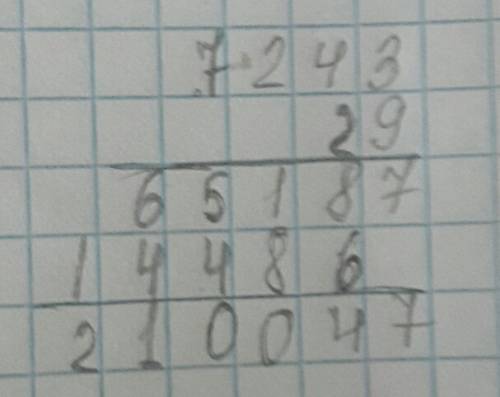 7243
29
65187
14486
210047